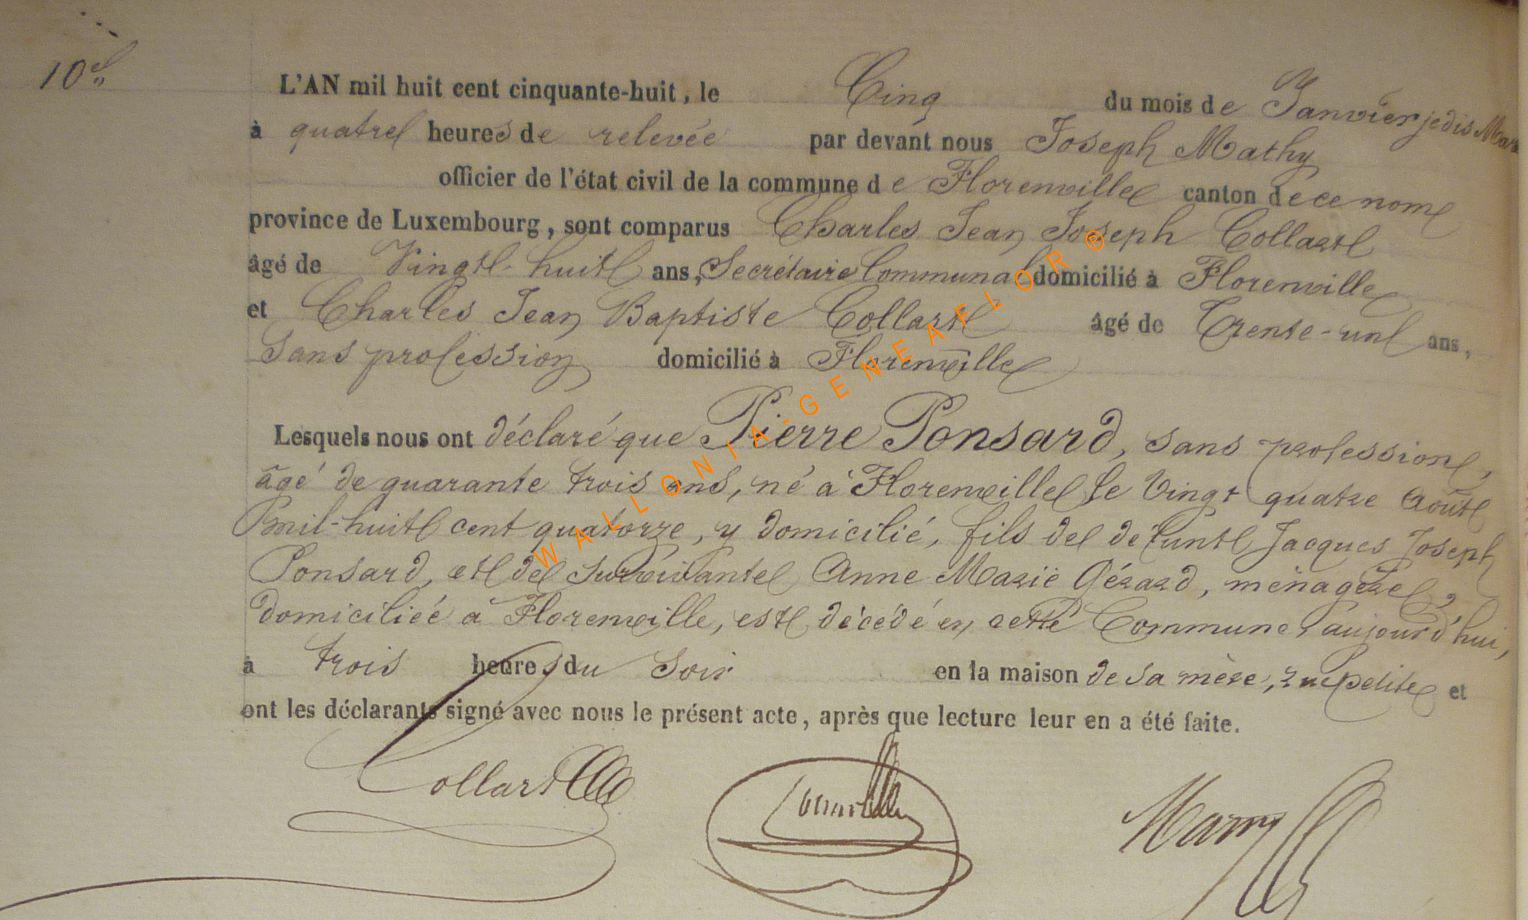 10e
L'AN mil huit cent cinquante-huit, le Cinq du mois de Janvier je dis Mars
à quatre heures de relevée par devant nous Joseph Mathy
officier de l'état civil de la commune de Florenville canton de ce nom
province de Luxembourg, sont comparus Charles Jean Joseph Collart
âgé de Vingt-huit ans, Secrétaire Communal domicilié à Florenville
et Charles Jean Baptiste Collart âgé de Trente-un ans,
Sans profession domicilié à Florenville
Lesquels nous ont déclaré que Pierre Ponsard, sans profession,
âgé de quarante trois ans, né à Florenville le Vingt quatre Août
mil-huit cent quatorze, y domicilié, fils de défunt Jacques Joseph
Ponsard, et de Survivante Anne Marie Gérard, ménagère,
domiciliée à Florenville, est décédé en cette Commune, aujourd'hui,
à trois heures du Soir en la maison de sa mère, rue petite et
ont les déclarants signé avec nous le présent acte, après que lecture leur en a été faite.
Collart
WALLONIA-GENEAFLOR©